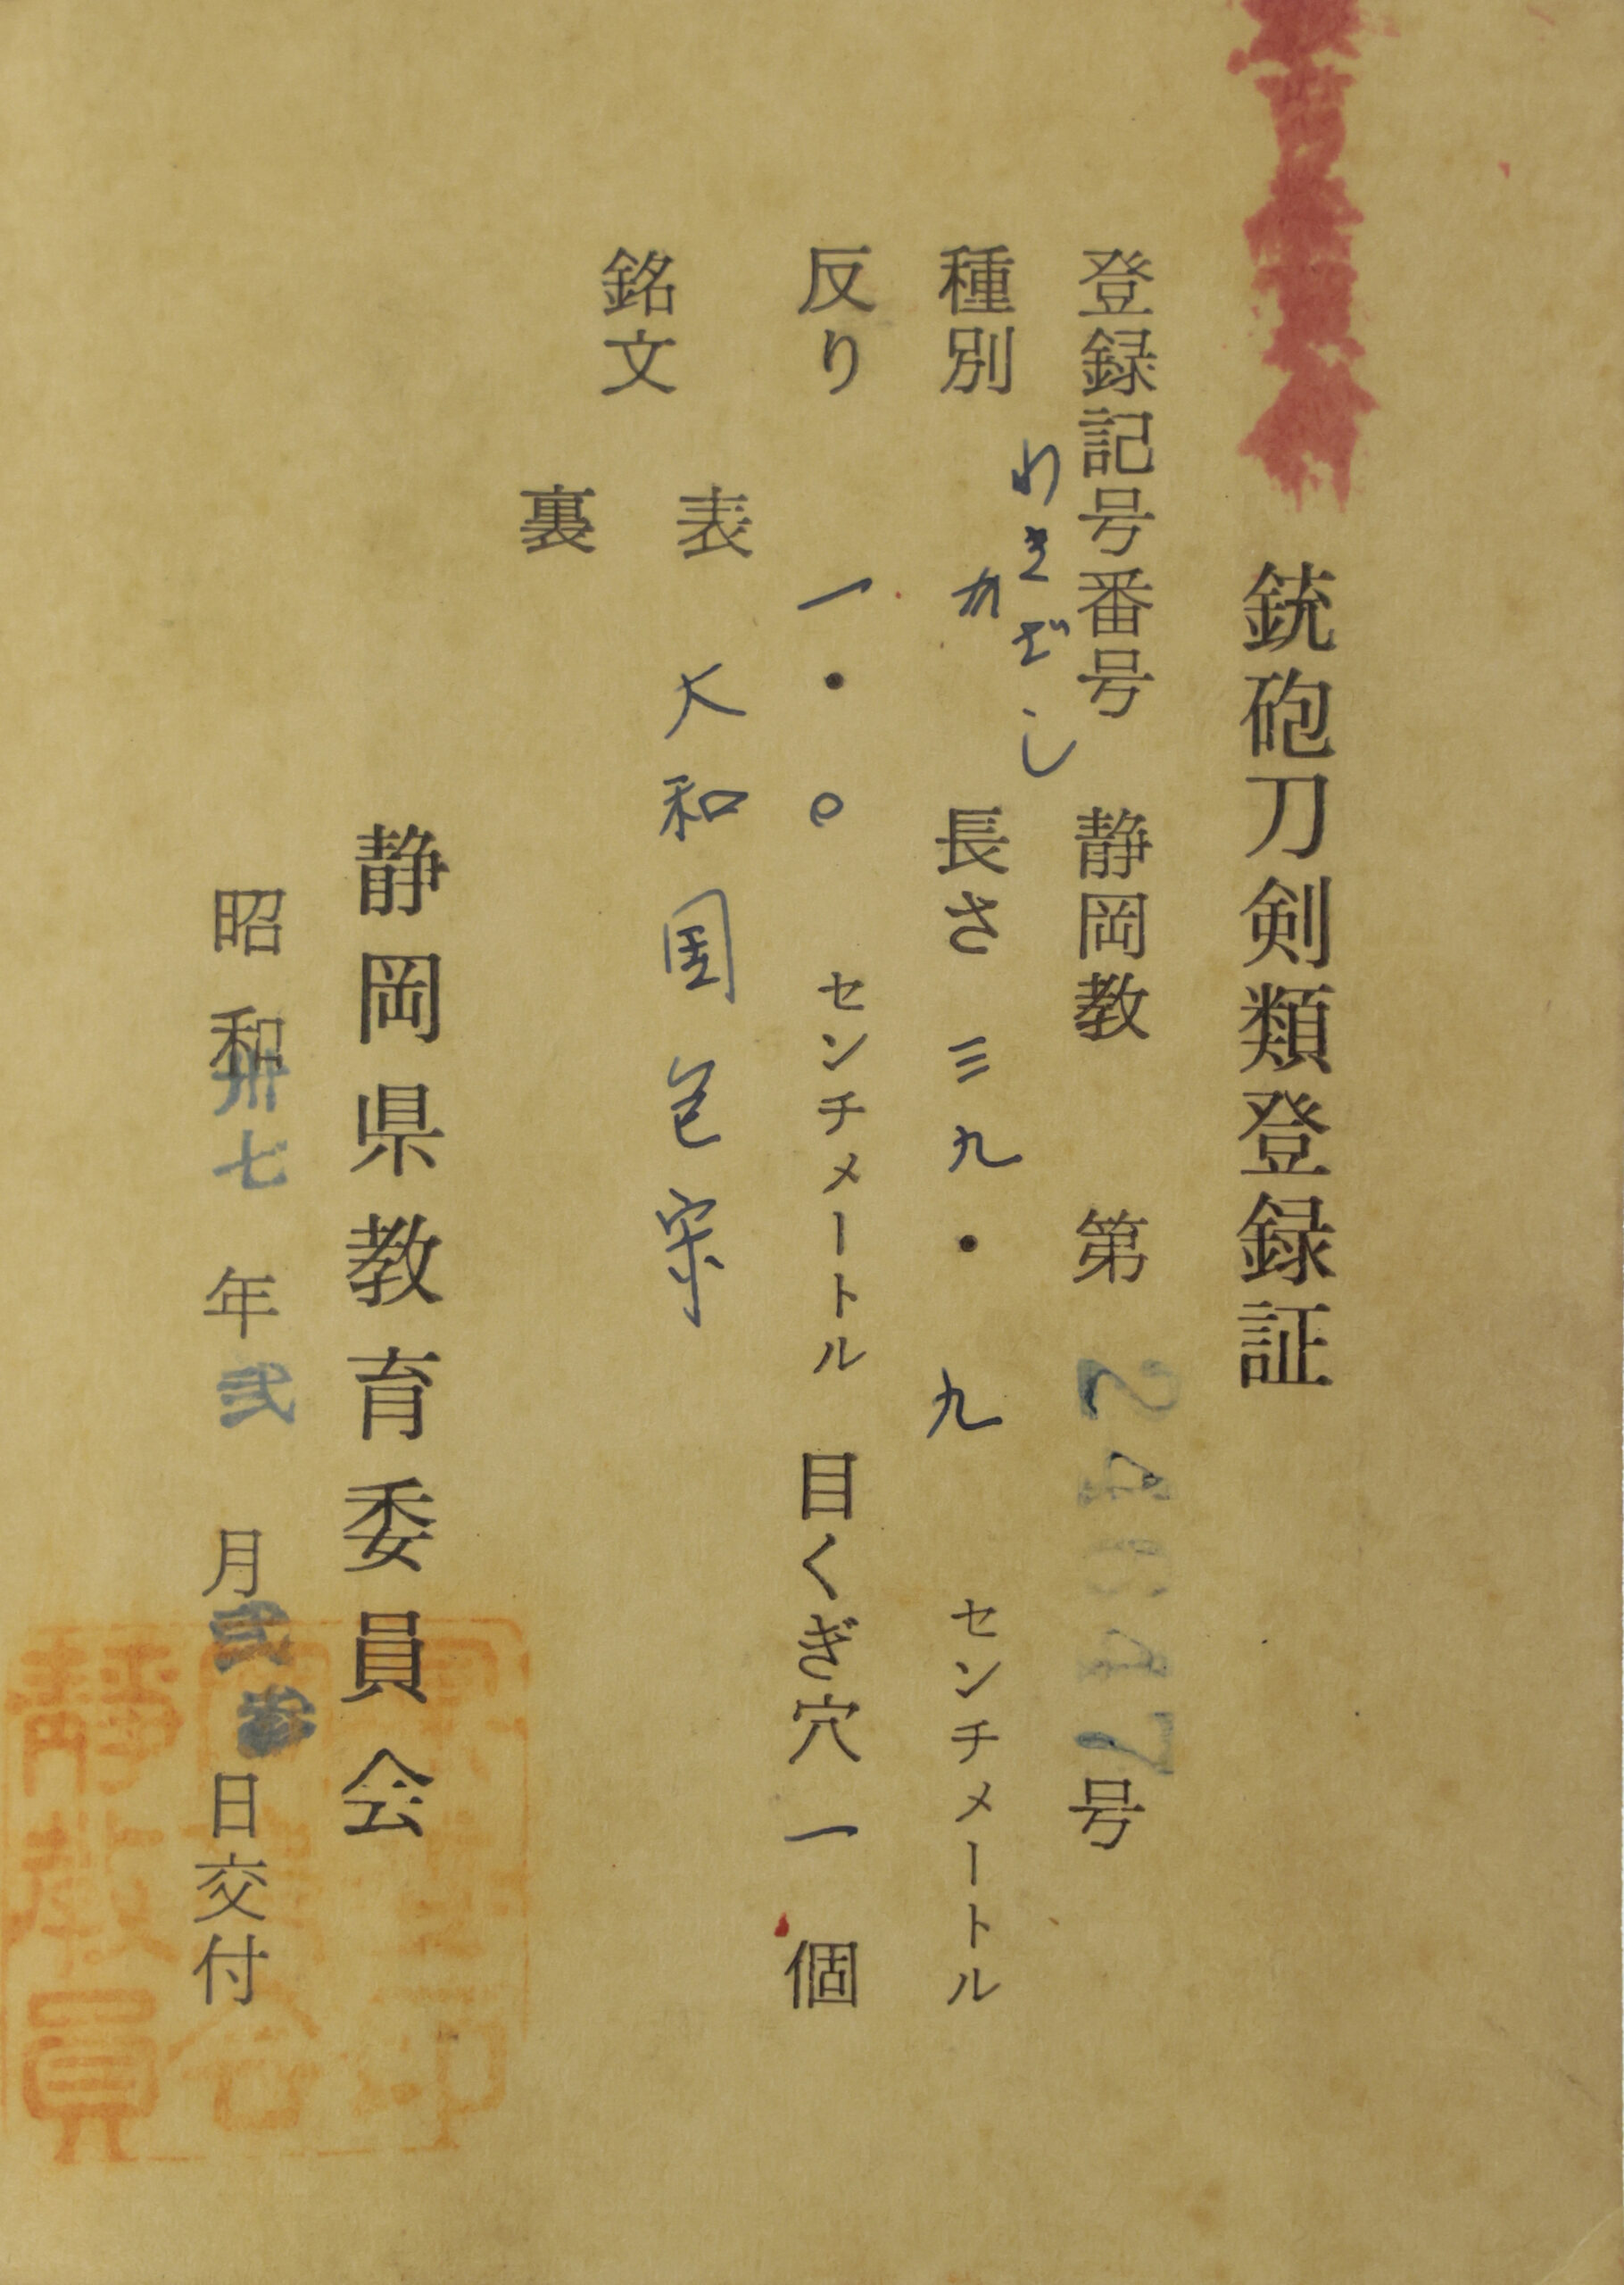 銃砲刀剣類登録証
登録記号番号 静岡教 第 24647号
種別 わきざし 長さ 三九・九 センチメートル
反り 一・〇 センチメートル 目くぎ穴 一 個
銘文 表 大和国包宗
裏
静岡県教育委員会
昭和卅七年弐月弐 日交付